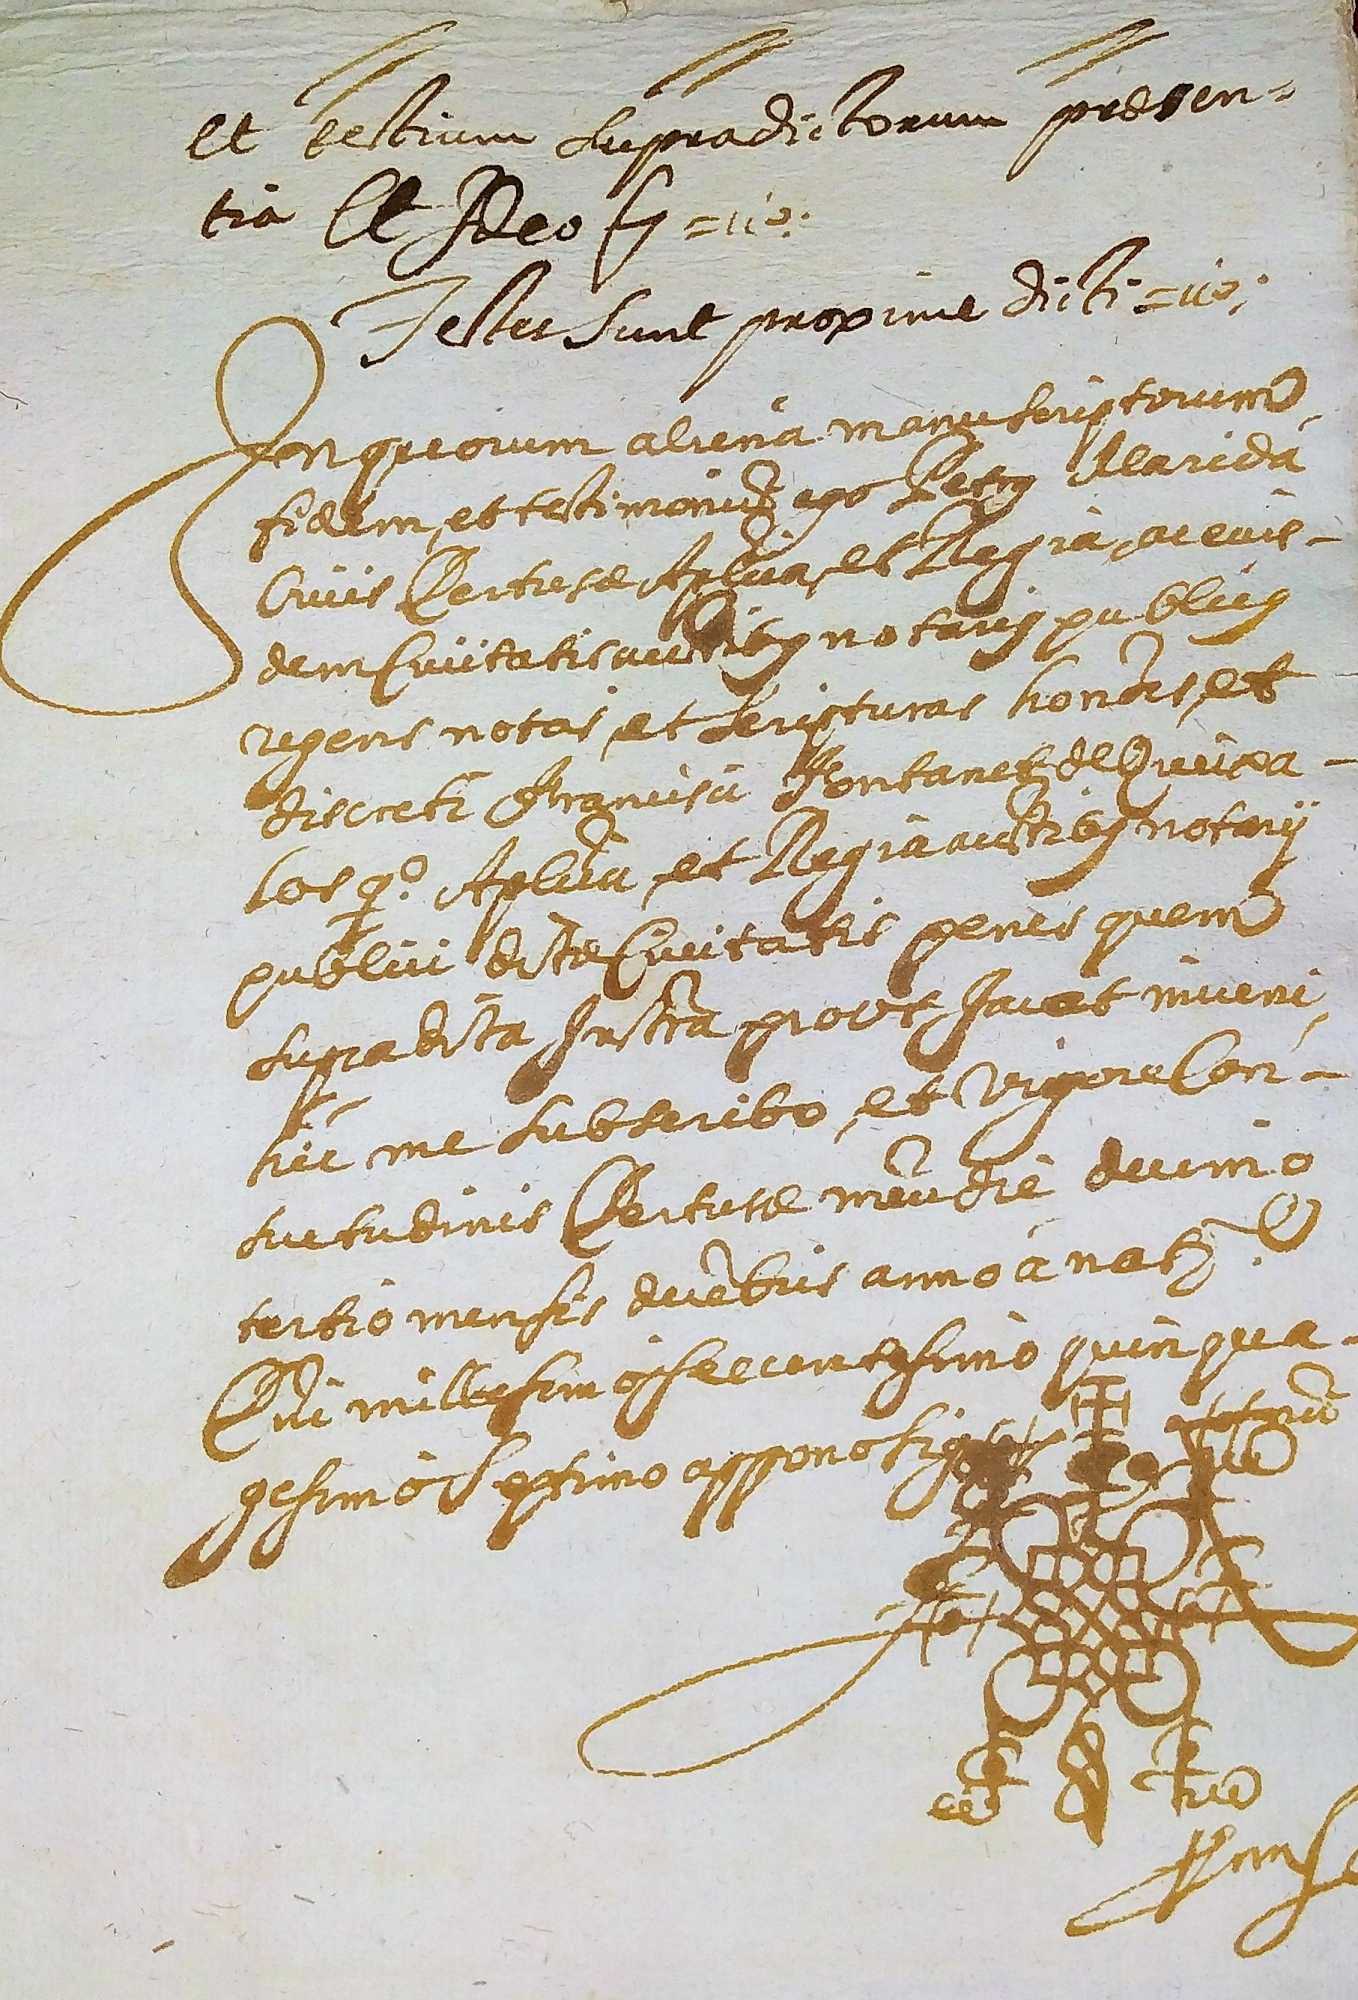 et testium supradictorum præsen=
tia Et Ideo
Testes sunt proxime dicti
In quorum aliena manu scriptorum
fidem, et testimoniũ ego Petrus Marida
Civis Dertusæ Aplica, et Regia, ac eius-
dem Civitatis auctibus notarius publicus
regens notas, et scripturas honōris, et
discreti Francisci Fontanet de Queixa-
los qº. Aplica, et Regia auctibus notarij
publici dictæ Civitatis penes quem
supradicta Instra prout Jacet inveni
hic me subscribo, et vigore Con-
suetudinis Dertusæ die decimo
tertio mensis decēbris anno à natte.
Dni millesimo sexcentesimo quinqua-
gesimo septimo appono sig